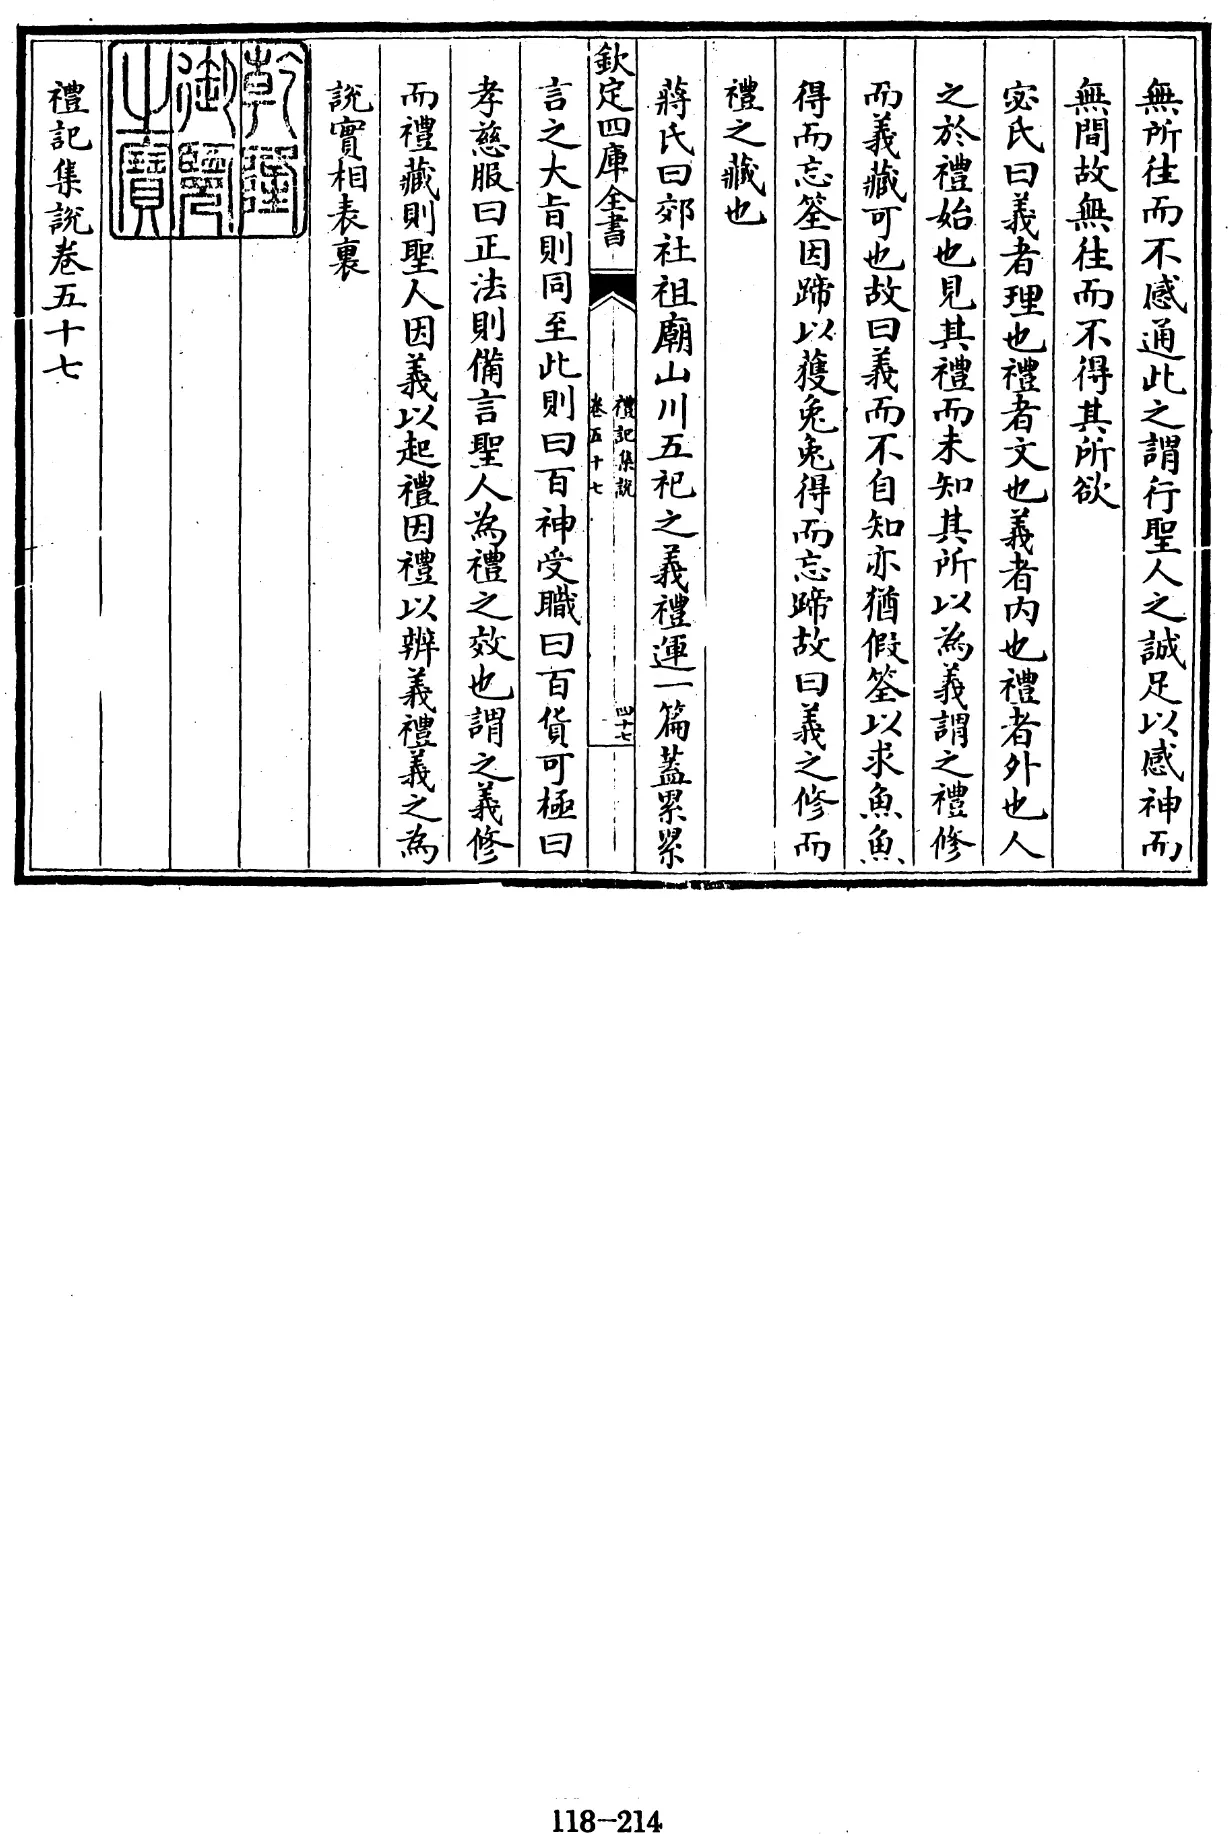 無所往而不感通此之謂行聖人之誠足以感神而
無間故無往而不得其所欲
宓氏曰義者理也禮者文也義者内也禮者外也人
之於禮始也見其禮而未知其所以為義謂之禮修
而義藏可也故曰義而不自知亦猶假筌以求魚魚
得而忘筌因蹄以獲兔兔得而忘蹄故曰義之修而
禮之藏也
蔣氏曰郊社祖廟山川五祀之義禮運一篇蓋累累
欽定四庫全書
禮記集說
卷五十七
四十七
言之大旨則同至此則曰百神受職曰百貨可極曰
孝慈服曰正法則備言聖人為禮之效也謂之義修
而禮藏則聖人因義以起禮因禮以辨義禮義之為
說實相表裏
乾隆
御覽
之寶
禮記集說卷五十七
118-214